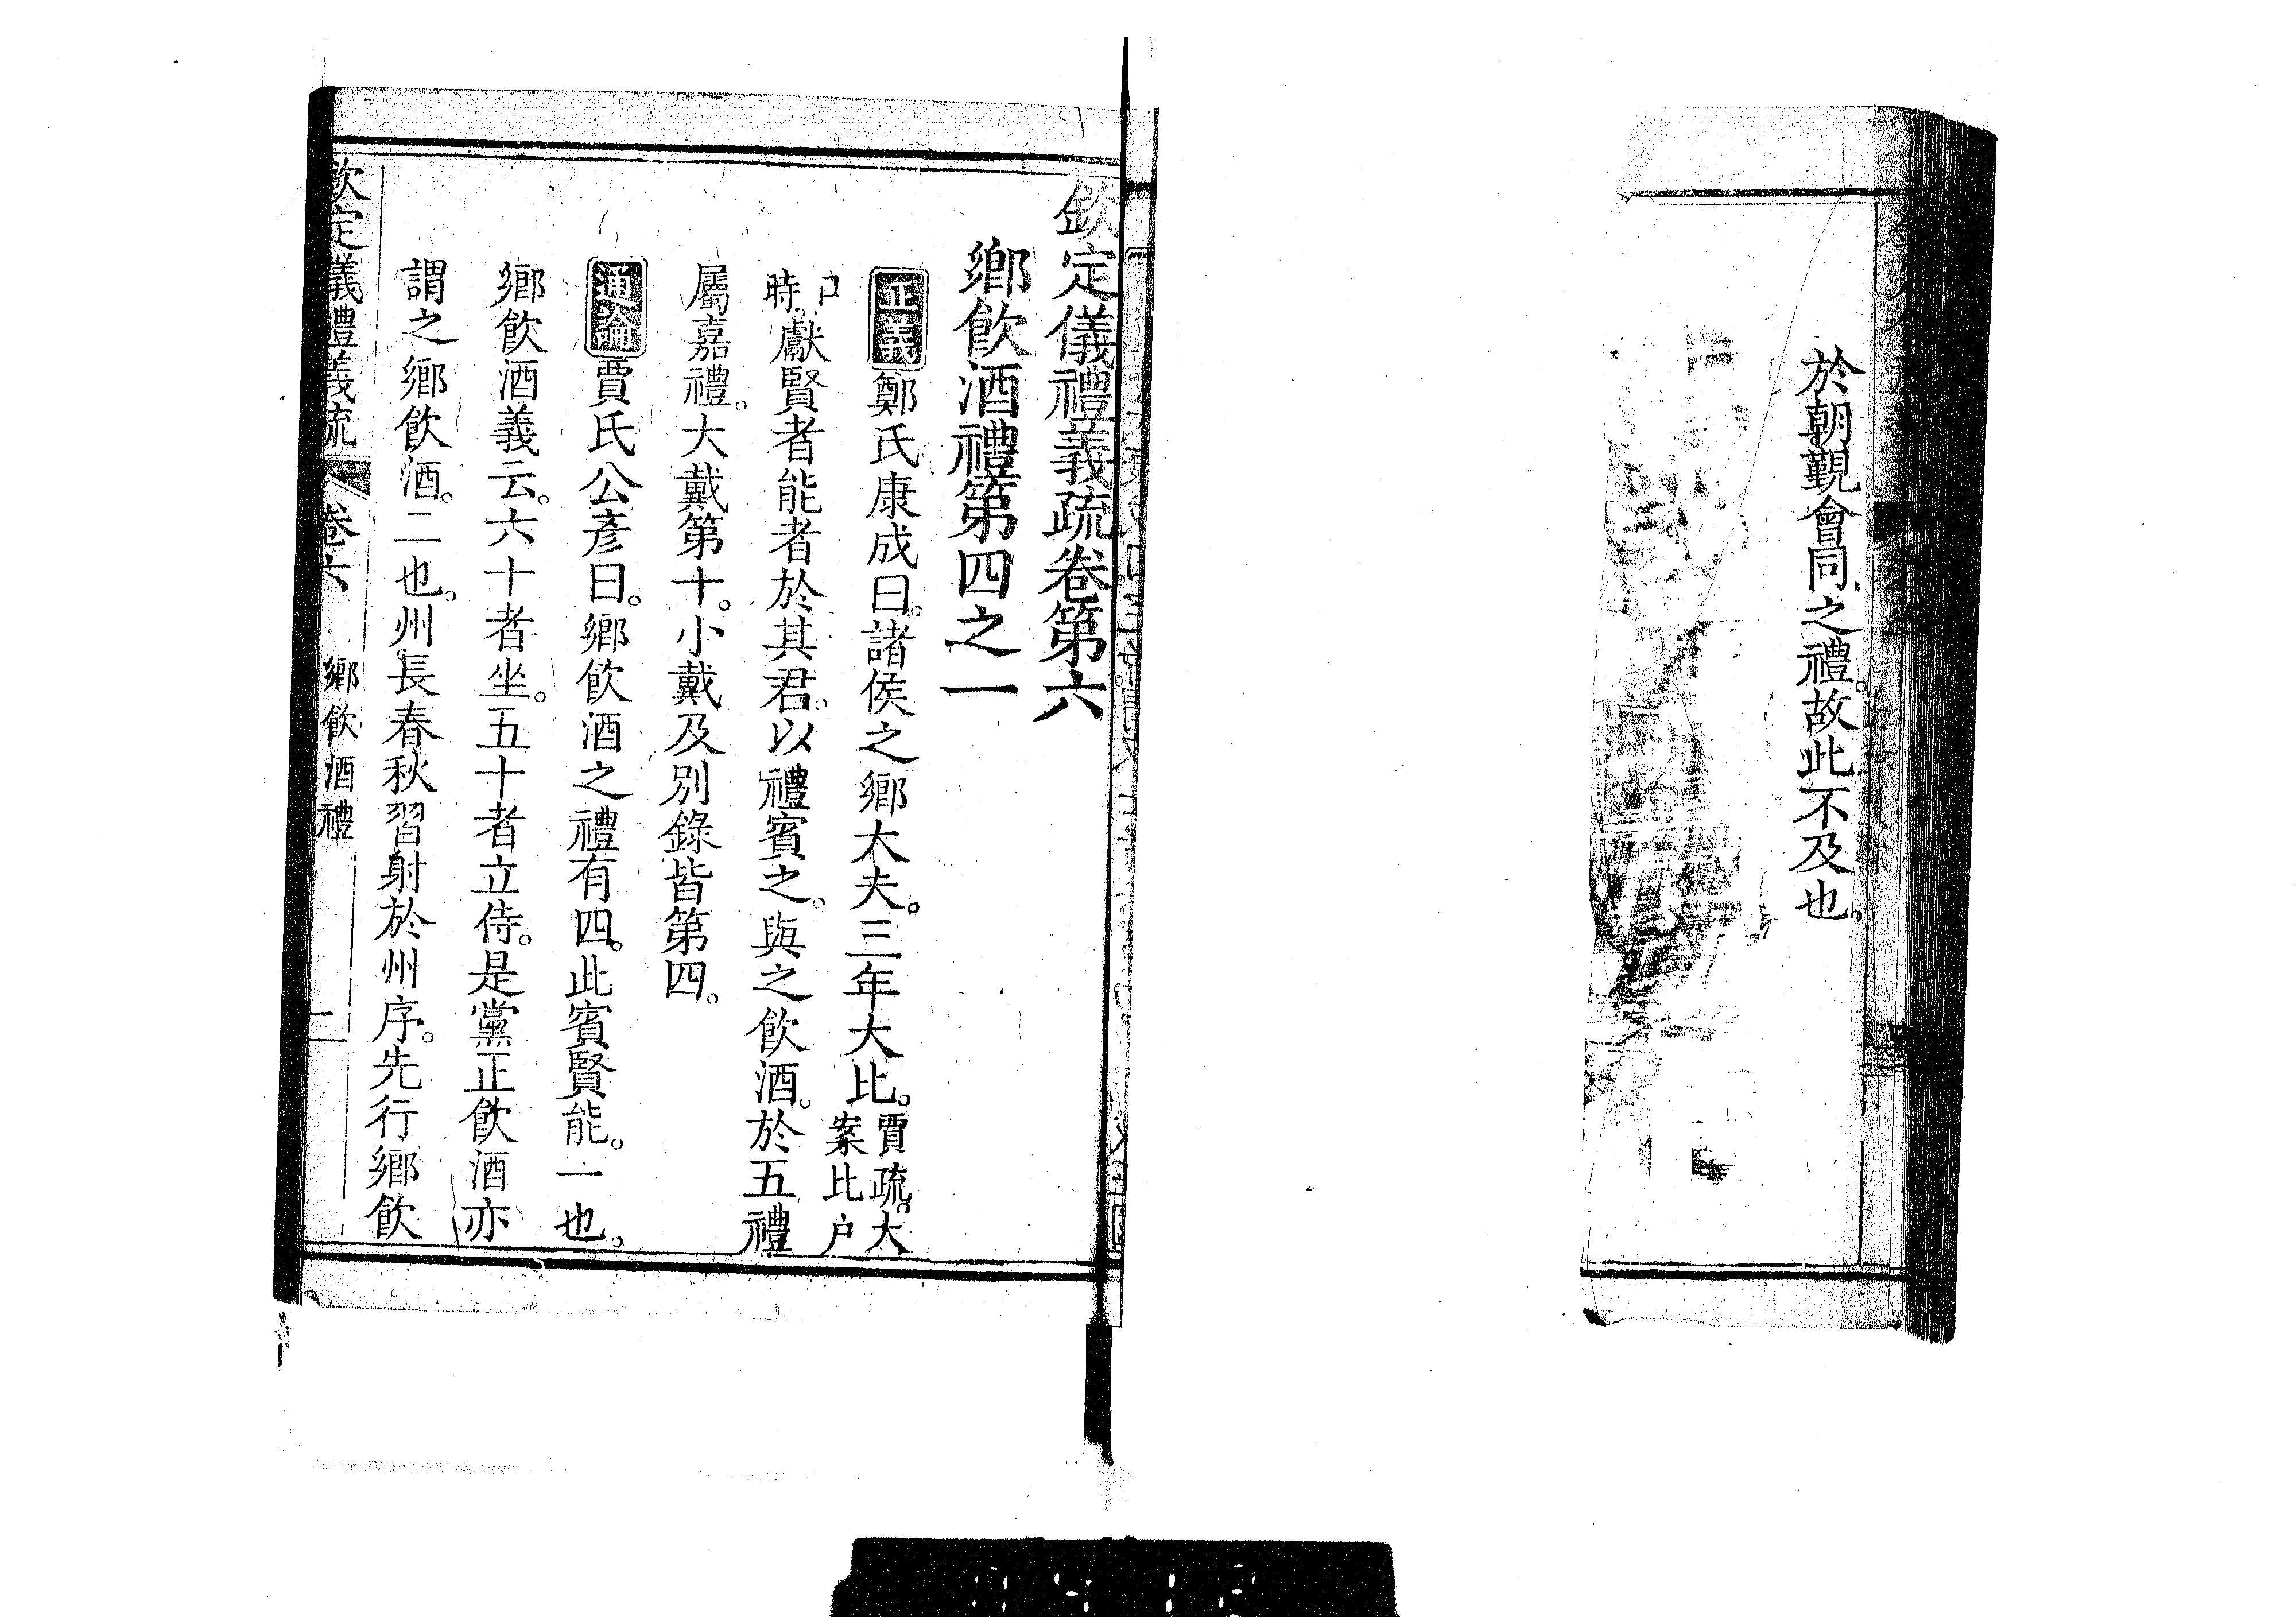 於朝覲會同之禮。故此不及也。
欽定儀禮義疏卷第六
鄉飲酒禮第四之一
正義鄭氏康成曰。諸侯之鄉大夫。三年大比。賈疏。大案比户
口時。獻賢者能者於其君。以禮賓之。與之飲酒。於五禮
屬嘉禮。大戴第十。小戴及別錄皆第四。
通論賈氏公彥曰。鄉飲酒之禮有四。此賓賢能。一也。
鄉飲酒義云。六十者坐。五十者立侍。是黨正飲酒亦
謂之鄉飲酒。二也。州長春秋習射於州序。先行鄉飲
欽定儀禮義疏 卷六 鄉飲酒禮